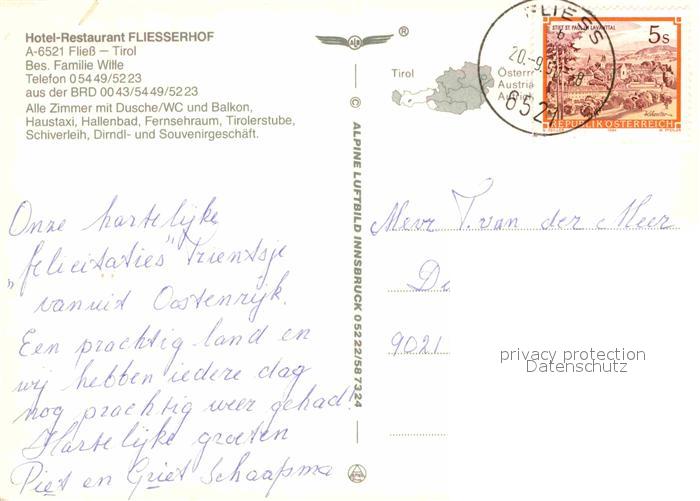 Hotel-Restaurant FLIESSERHOF
A-6521 Fließ – Tirol
Bes. Familie Wille
Telefon 0 54 49/52 23
aus der BRD 00 43/54 49/52 23
Alle Zimmer mit Dusche/WC und Balkon,
Haustaxi, Hallenbad, Fernsehraum, Tirolerstube,
Schiverleih, Dirndl- und Souvenirgeschäft.
Onze hartelijke
"felicitaties" Trientsje
vanuit Oostenrijk.
Een prachtig land en
wij hebben iedere dag
nog prachtig weer gehad!
Hartelijke groeten
Piet en Griet Schaapsma
®
© ALPINE LUFTBILD INNSBRUCK 0 52 22/58 7324
Tirol
Österr
Austria
FLIESS
6521
5 S
STIFT ST. PAUL IM LAVANTTAL
REPUBLIK ÖSTERREICH
Mevr T. van der Meer
De
9021
privacy protection
Datenschutz